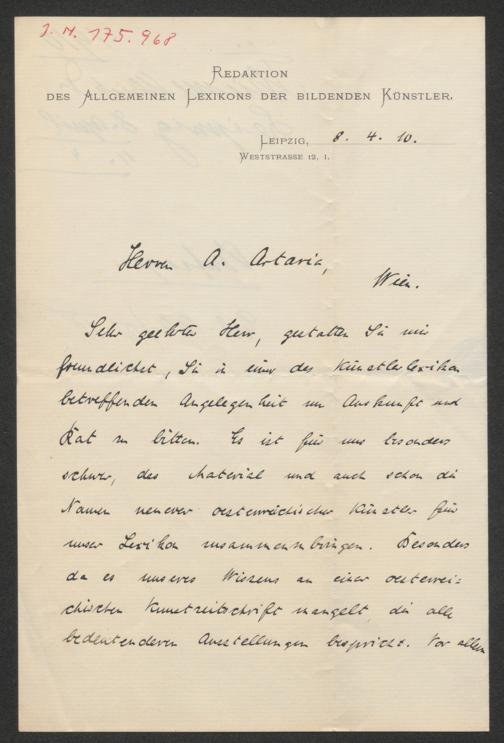 J. N. 175.968
REDAKTION
DES ALLGEMEINEN LEXIKONS DER BILDENDEN KÜNSTLER.
LEIPZIG, 8. 4. 10.
WESTSTRASSE 12, I.
Herrn A. Artaria,
Wien.
Sehr geehrter Herr, gestatten Sie mir
freundlichst, Sie in einer das Künstlerlexikon
betreffenden Angelegenheit um Auskunft und
Rat zu bitten. Es ist für uns besonders
schwer, das Material und auch schon die
Namen neuerer oesterreichischer Künstler für
unser Lexikon zusammenzubringen. Besonders
da es unseres Wissens an einer oesterrei-
chischen Kunstzeitschrift mangelt, die alle
bedeutenderen Ausstellungen bespricht. Vor allem